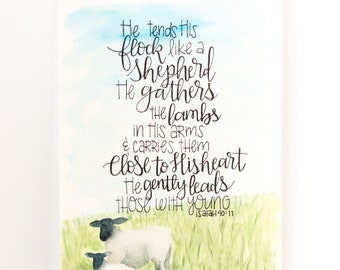 He tends His
flock like a
shepherd
He gathers
the lambs
in His arms
& carries them
Close to His heart
He gently leads
those with young
isaiah 40:11